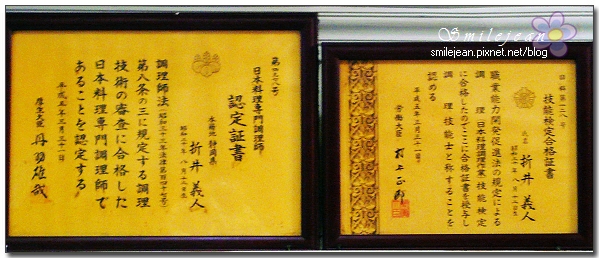 Smilejean
smilejean.pixnet.net/blog
日本料理専門調理師
認定証書
本籍地 静岡県
折井義人
調理師法(昭和三十三年法律第百四十七号)
第八条の三に規定する調理
技術の審査に合格した
日本料理専門調理師で
あることを認定する
平成五年三月三十一日
厚生大臣 丹羽雄哉
技能検定合格証書
氏名 折井義人
職業能力開発促進法の規定による
調理(日本料理調理作業)技能検定
に合格したのでここに合格証書を授与し
調理技能士と称することを
認める
平成五年三月三十一日
労働大臣 村上正邦